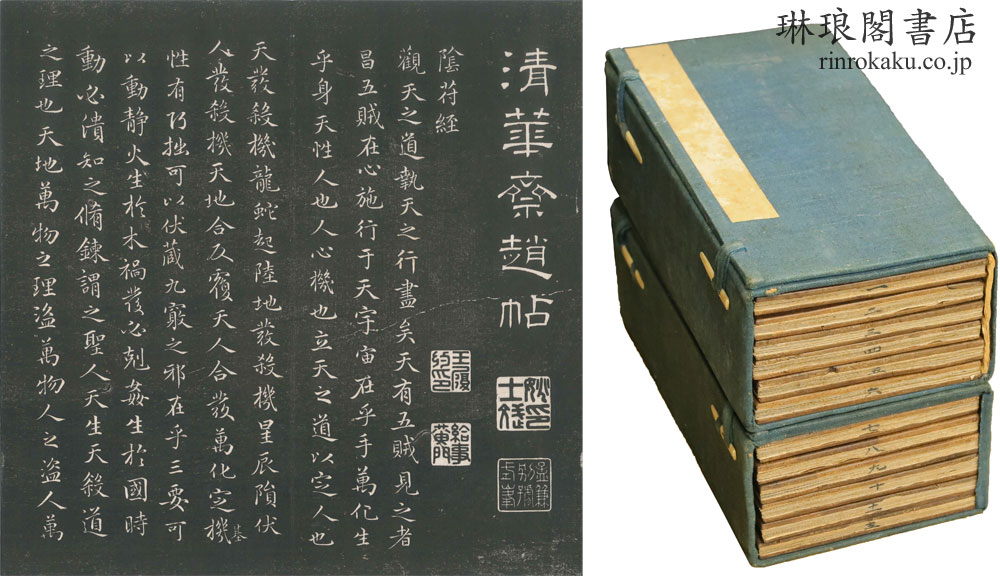 琳琅閣書店
rinrokaku.co.jp
清華齋趙帖
給事黃門
陰符經
觀天之道執天之行盡矣天有五賊見之者
昌五賊在心施行于天宇宙在乎手萬化生
乎身天性人也人心機也立天之道以定人也
天發殺機龍蛇起陸地發殺機星辰隕伏
人發殺機天地合反覆天人合發萬化定機基
性有巧拙可以伏藏九竅之邪在乎三要可
以動静火生於木禍發必剋姦生於國時
動必潰知之脩鍊謂之聖人天生天殺道
之理也天地萬物之理盜萬物人之盜人萬
二
三
四
五
六
七
八
九
十